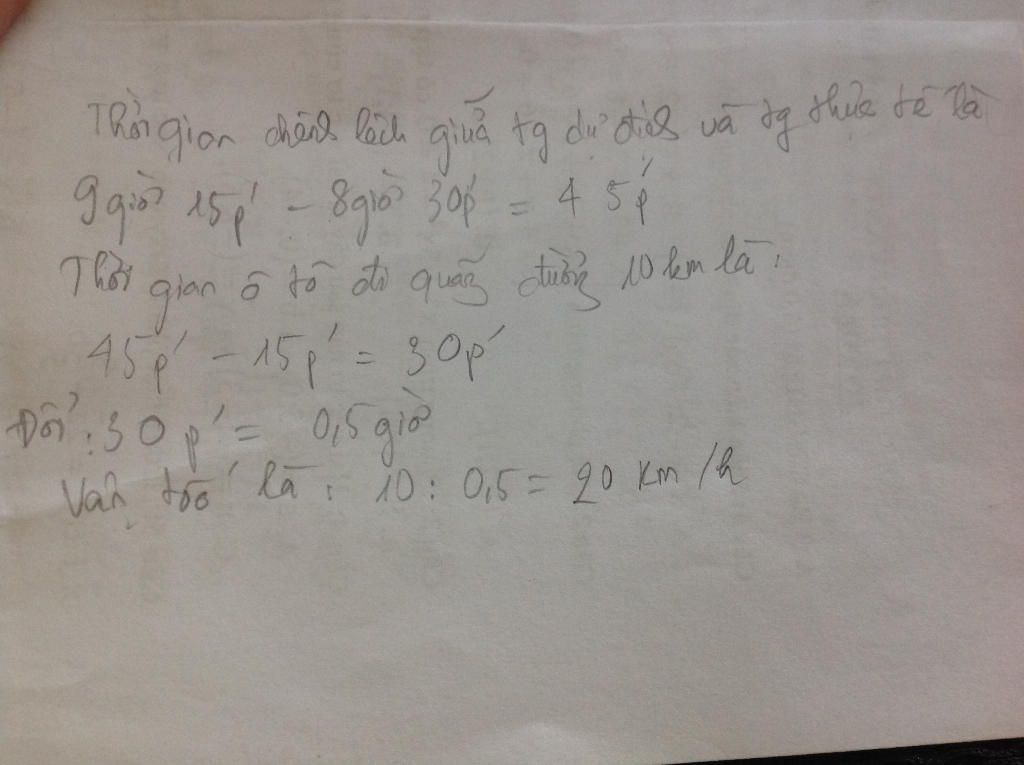 Thời gian chênh lệch giữa tg dự định và tg thực tế là
9 giờ 15p' - 8 giờ 30p' = 45p'
Thời gian ô tô đi quãng đường 10 km là :
45p' - 15p' = 30p'
Đổi : 30p' = 0,5 giờ
Vận tốc là : 10 : 0,5 = 20 km/h